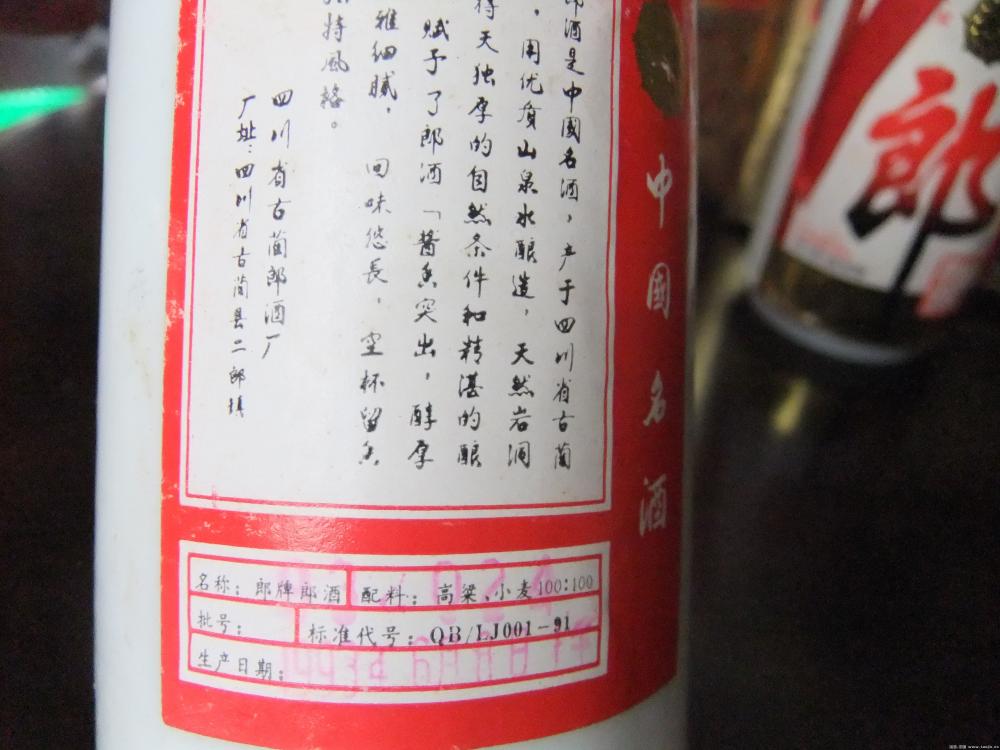 郎酒是中國名酒，产于四川省古蔺
，用优质山泉水酿造，天然岩洞
得天独厚的自然条件和精湛的酿
赋予了郎酒「醬香突出，醇厚
雅细腻，回味悠長，空杯留香
特風格。
四川省古蔺郎酒厂
厂址：四川省古蔺县二郎镇
中國名酒
郎
名称：郎牌郎酒 配料：高粱、小麦100:100
批号： 标准代号：QB/LJ001-91
生产日期：